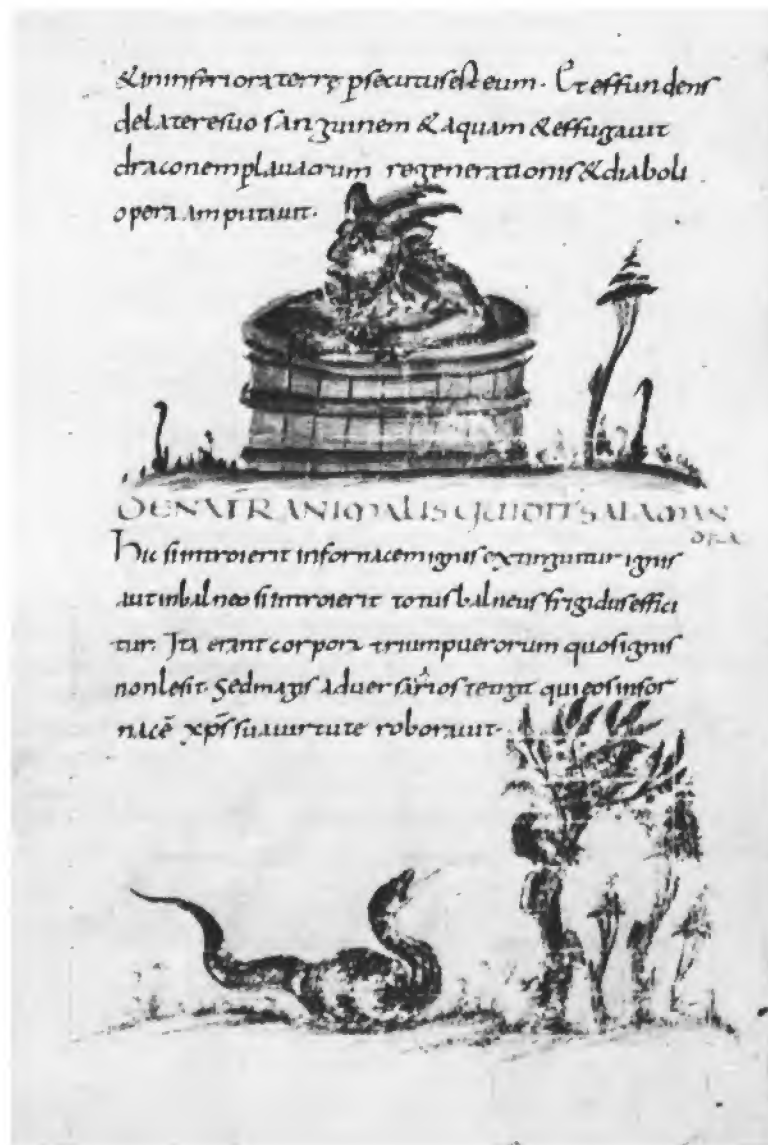 & ininferiora terrę psecutus est eum. Et effundens
de latere suo sanguinem & aquam & effugauit
draconem p lauacrum regenerationis & diaboli
opera amputauit.
DE NATR ANIMALIS QUI DIT SALAMAN
DRA
Hic si introierit in fornacem ignis extinguitur ignis
aut in balneo si introierit totus balneus frigidus effici
tur. Ita erant corpora trium puerorum quos ignis
non lesit. Sed magis aduersarios tetigit qui eos infor
nacē xp̄s sua uirtute roborauit.